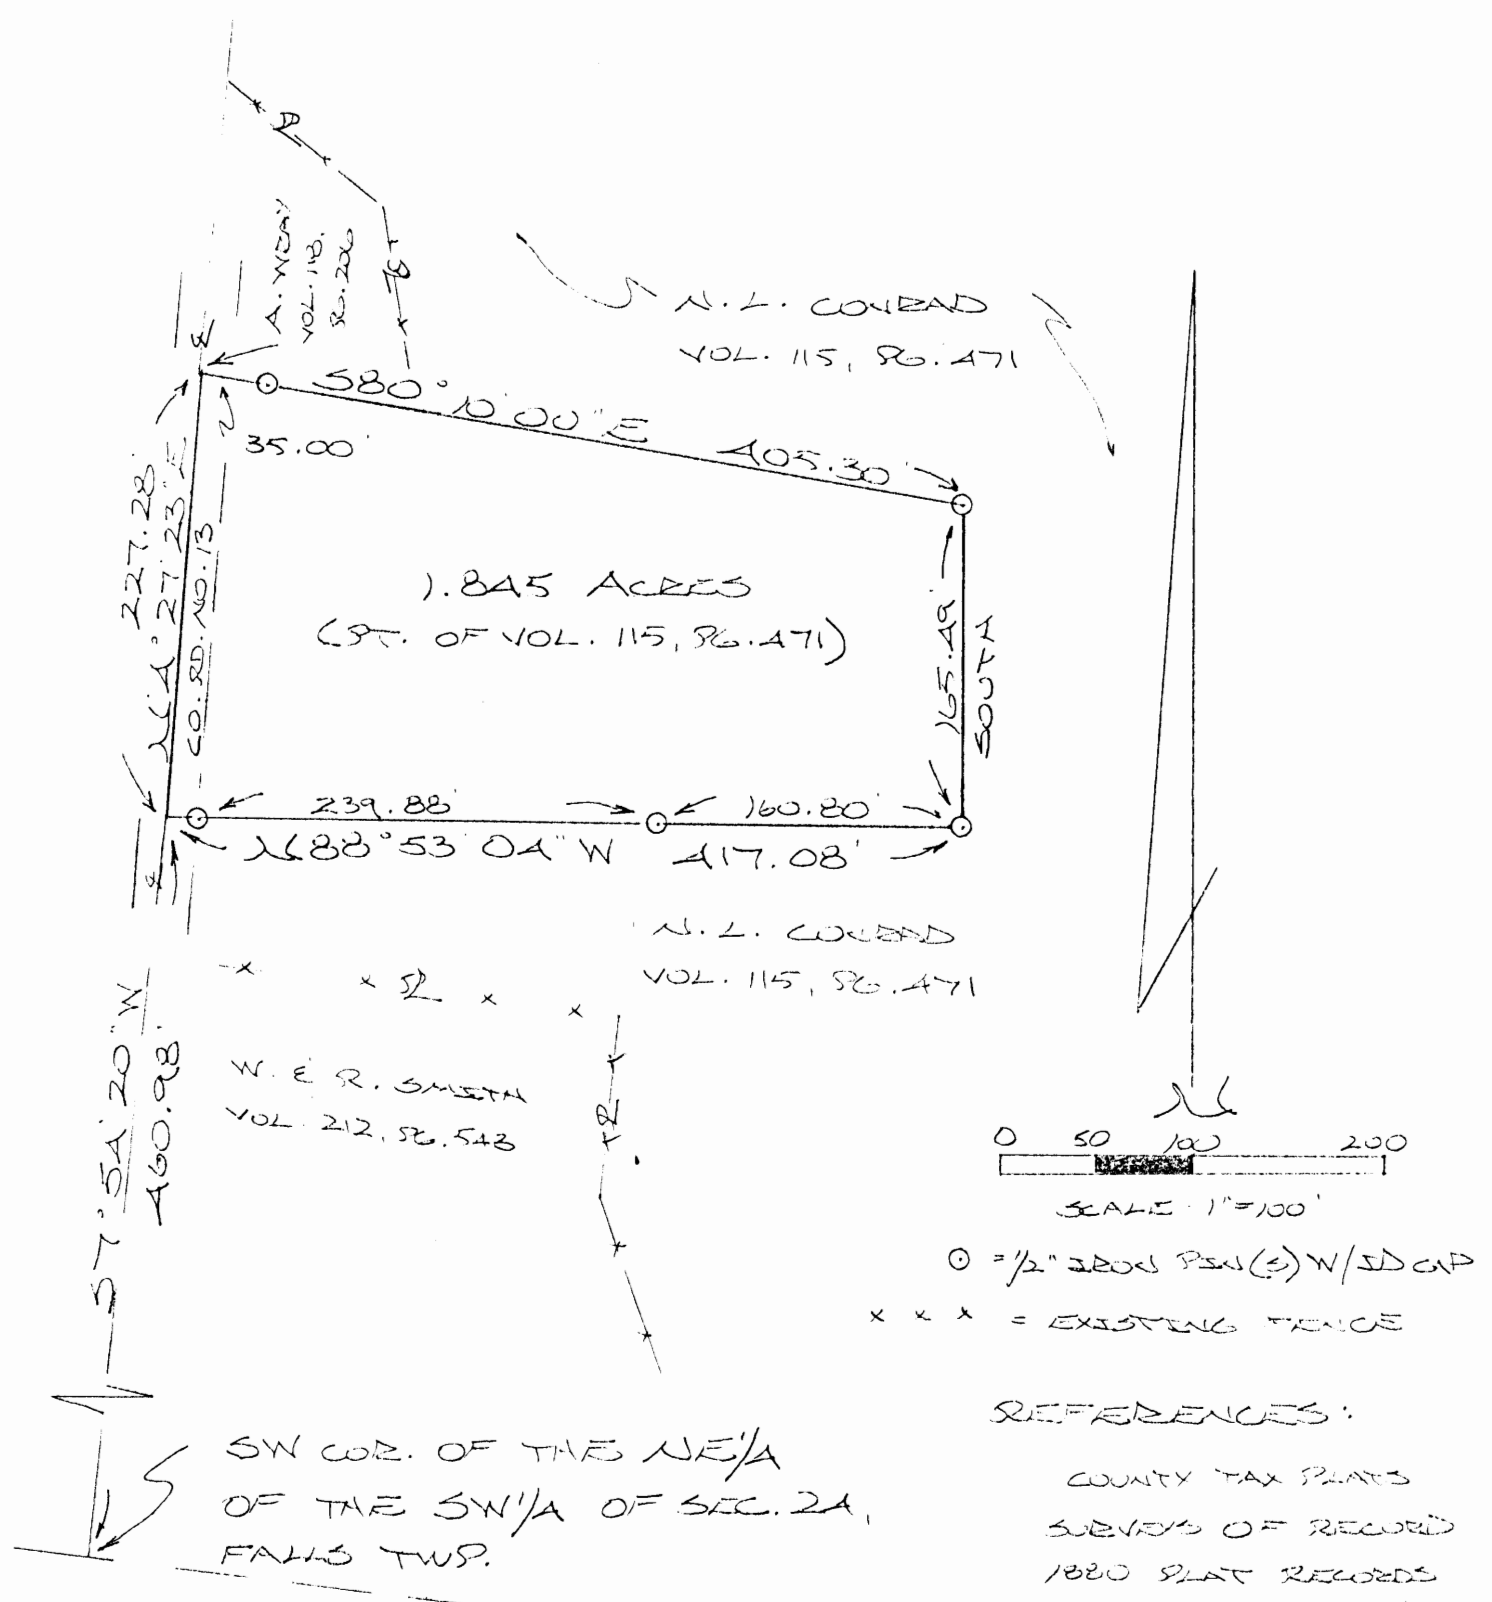 A. WRAY
VOL. 118,
PG. 206
N. L. CONRAD
VOL. 115, PG. 471
S80°10'00"E
405.30'
35.00'
227.28'
N4°27'23"E
CO. RD. NO. 13
1.845 ACRES
(PT. OF VOL. 115, PG. 471)
165.49'
SOUTH
239.88'
160.80'
N88°53'04"W 417.08'
N. L. CONRAD
VOL. 115, PG. 471
W. & R. SMITH
VOL. 212, PG. 543
S7°54'20"W
460.98'
N
0 50 100 200
SCALE 1"=100'
= 1/2" IRON PIN(S) W/ID CAP
x x x = EXISTING FENCE
REFERENCES:
COUNTY TAX PLATS
SURVEYS OF RECORD
1880 PLAT RECORDS
SW COR. OF THE NE1/4
OF THE SW1/4 OF SEC. 24,
FALLS TWP.